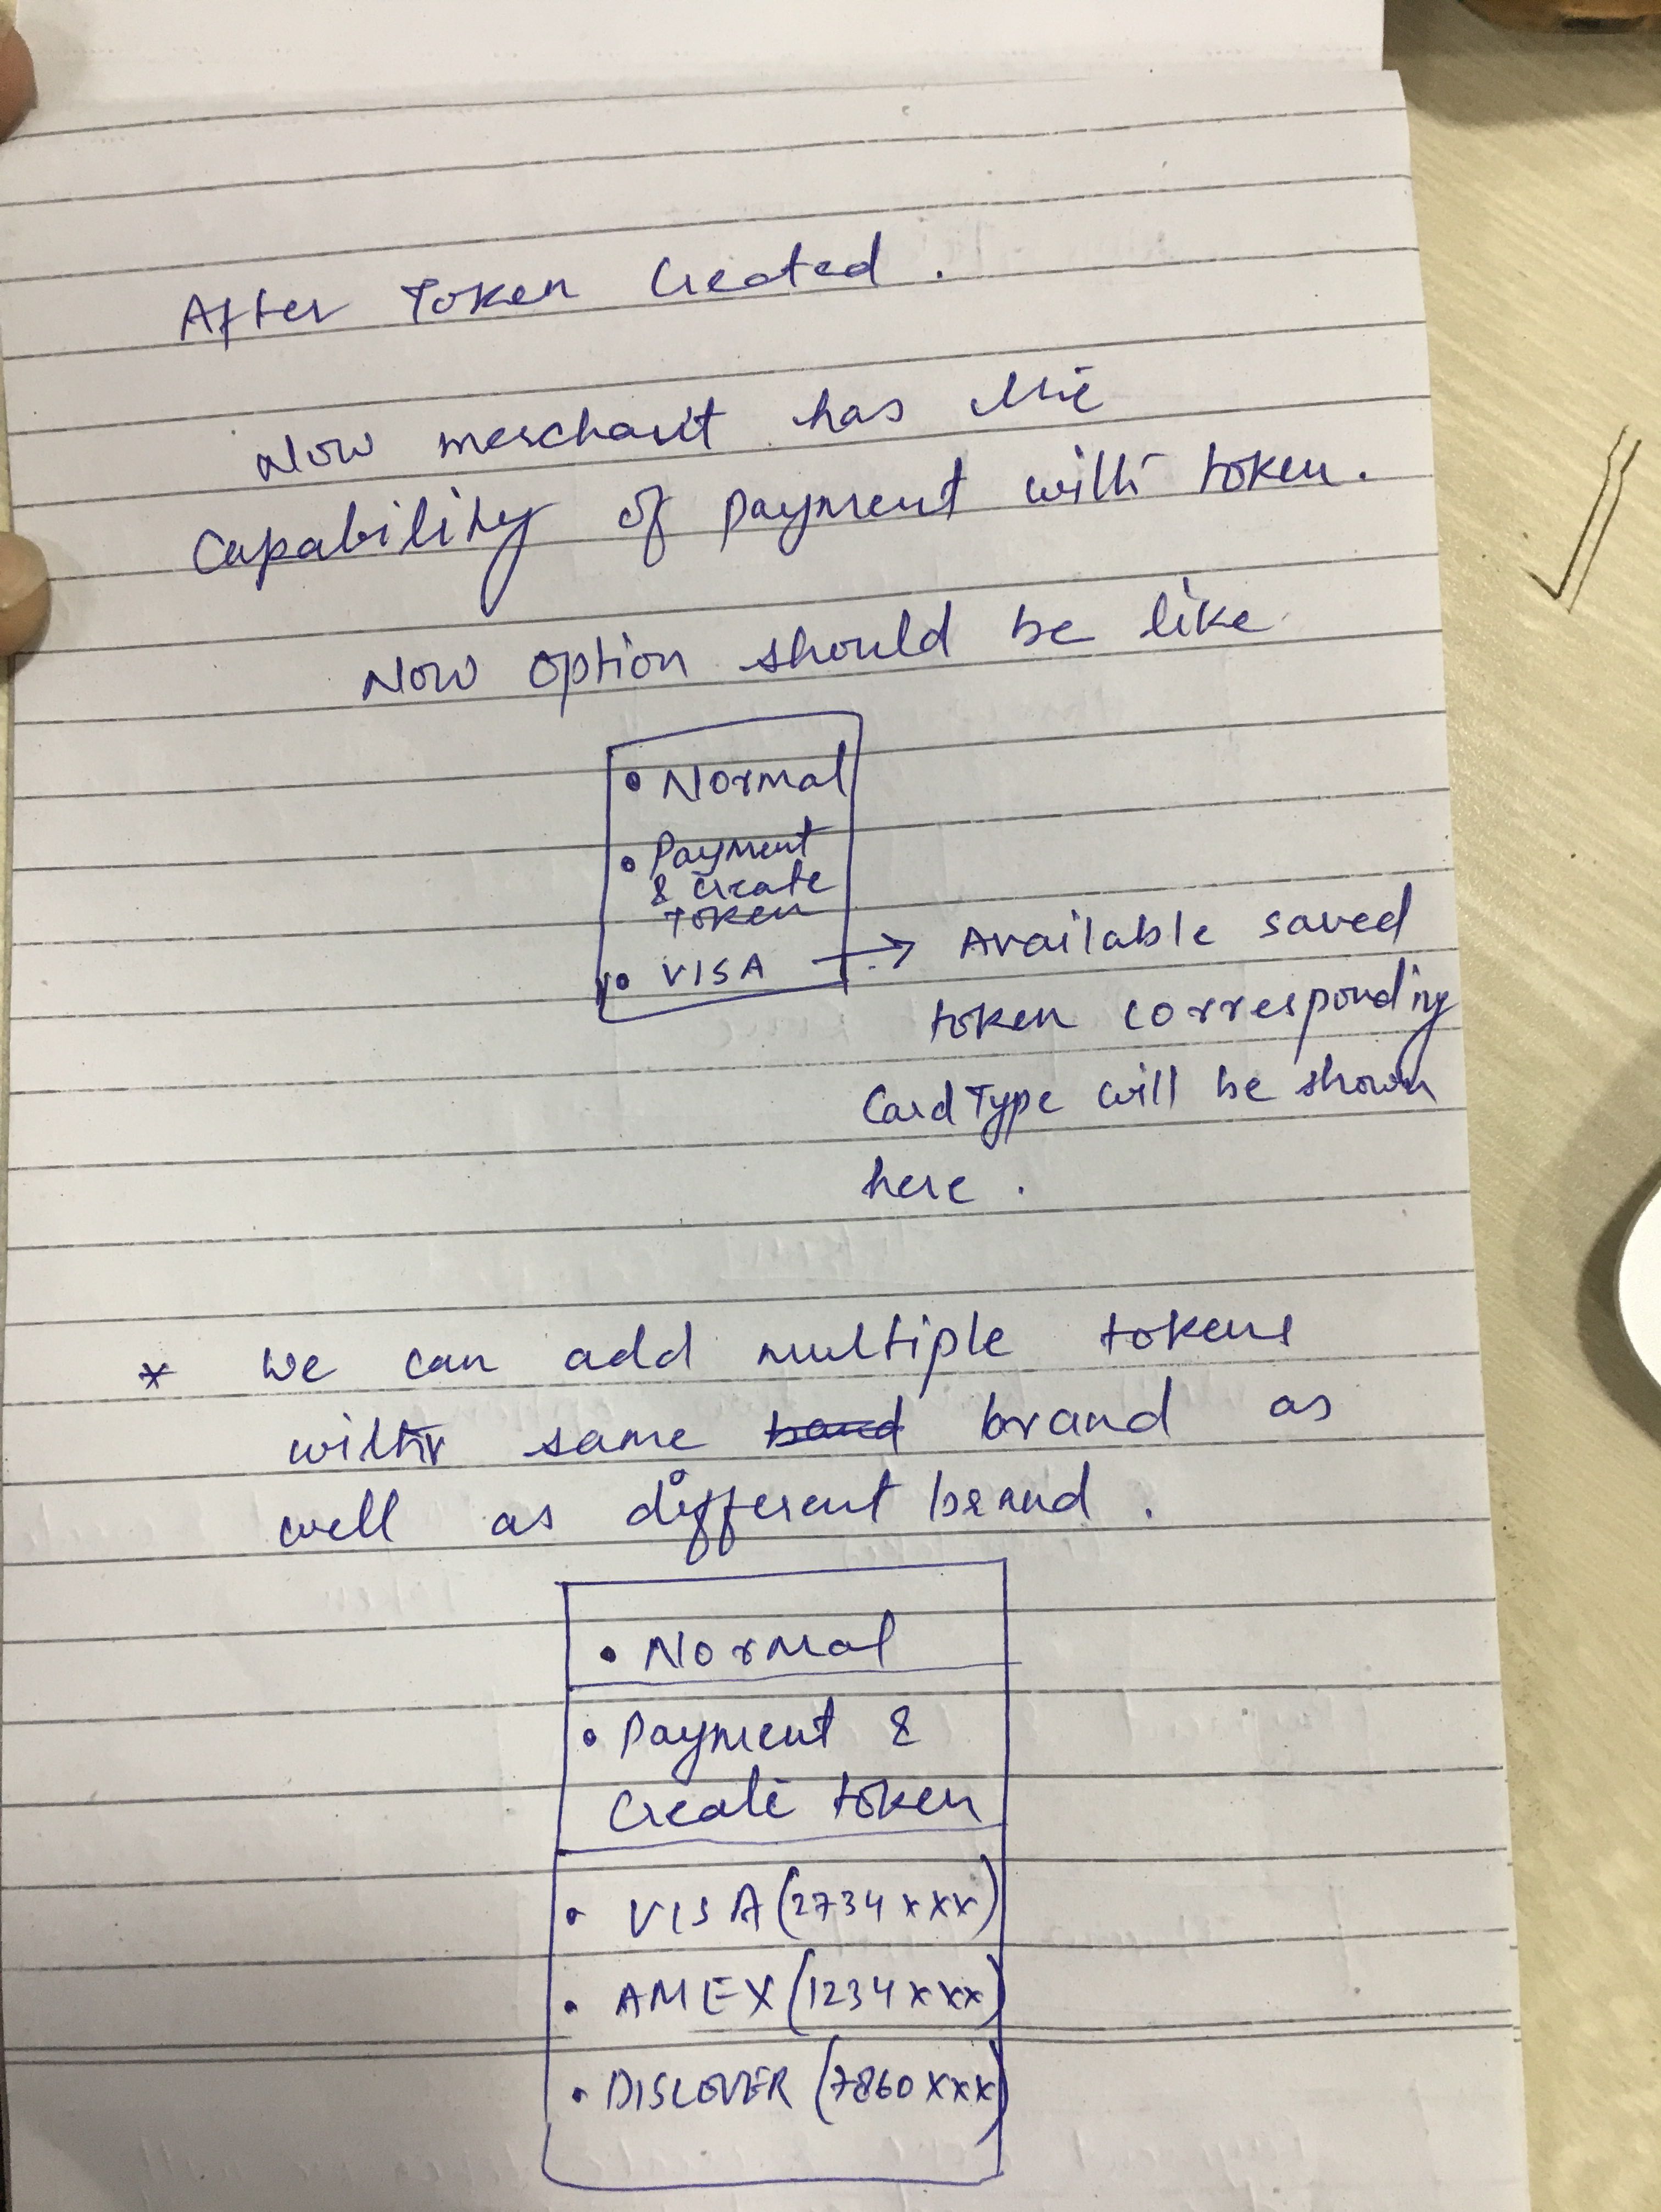 After Token Created.
Now merchant has the
Capability of payment with token.
Now option should be like
• Normal
• Payment
& create
Token
• VISA → Available saved
token corresponding
Card Type will be shown
here.
* we can add multiple tokens
with same brand as
well as different brand.
• Normal
• Payment &
Create token
• VISA (2734xxx)
• AMEX (1234xxx)
• DISCOVER (7860xxx)